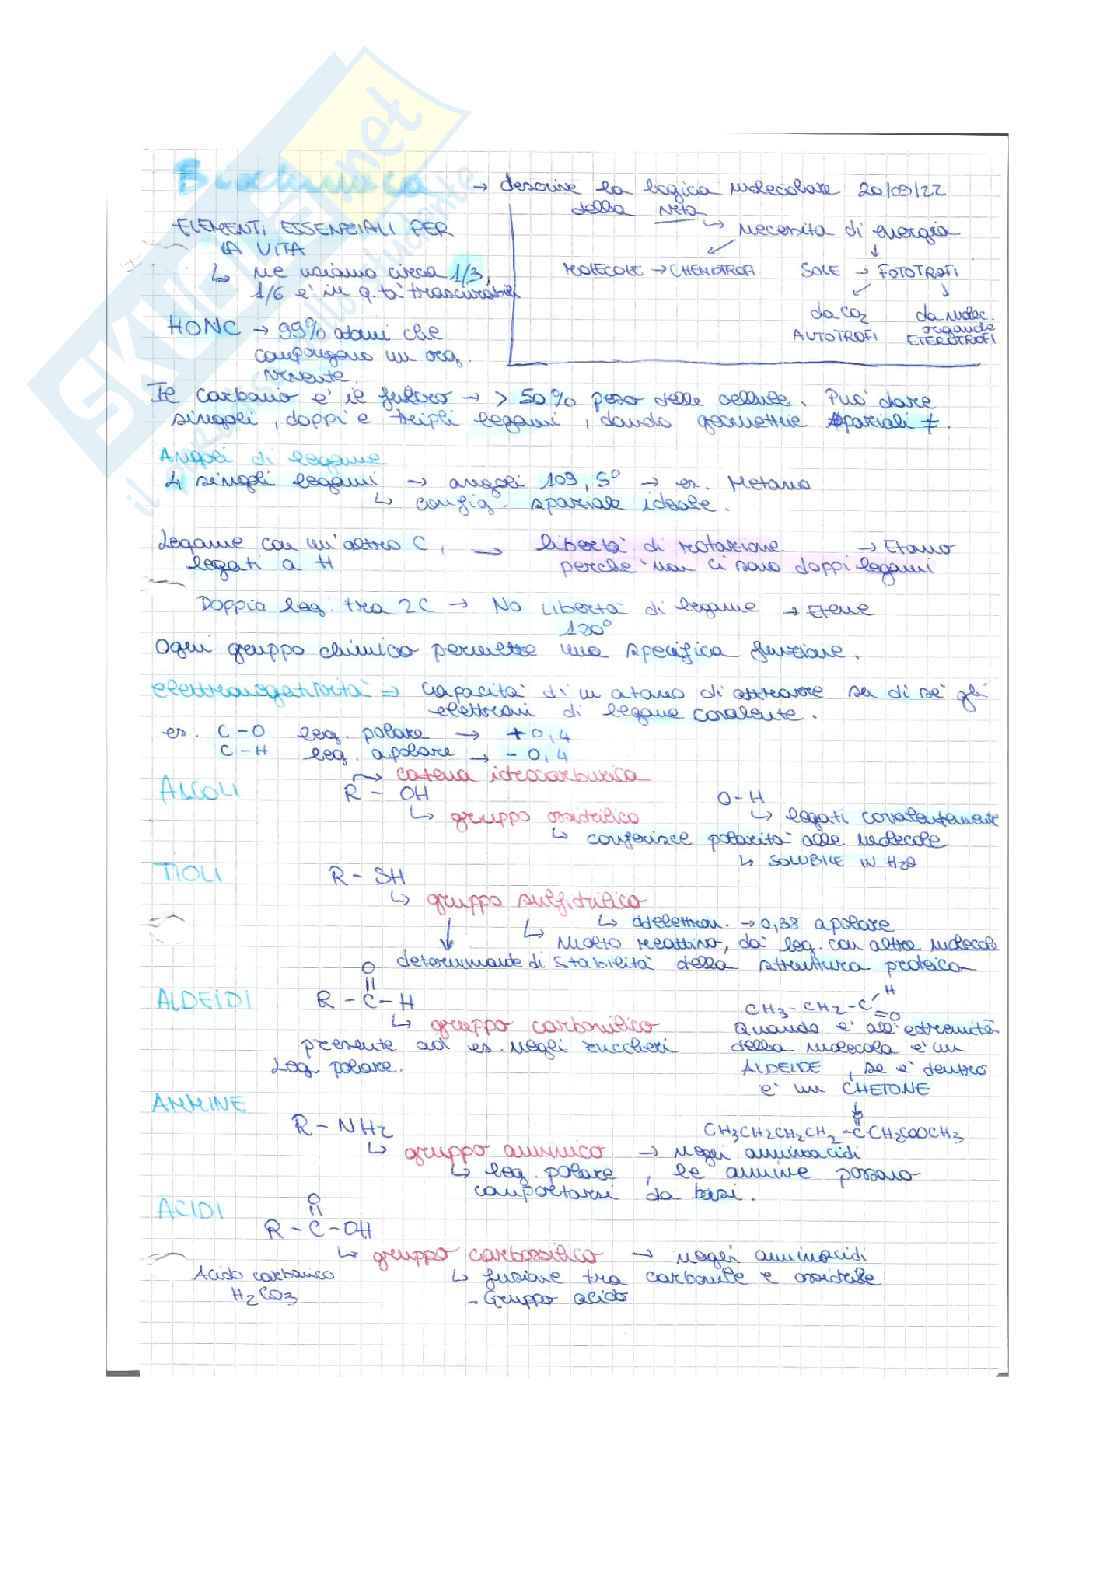 Biochimica → descrive la logica molecolare 20/09/22
della vita
↳ necessita di energia
MOLECOLE → CHEMIOTROFI SOLE → FOTOTROFI
da CO2 da molec.
organiche
AUTOTROFI ETEROTROFI
ELEMENTI ESSENZIALI PER
LA VITA
↳ ne usiamo circa 1/3,
1/6 è in q.tà trascurabili
HONC → 99% atomi che
compongono un org.
vivente.
Il carbonio è il fulcro → > 50% peso delle cellule. Può dare
singoli, doppi e tripli legami, dando geometrie spaziali ≠.
Angoli di legame
4 singoli legami → angoli 109,5° → es. Metano
↳ config. spaziale ideale.
Legame con un'altro C, → libertà di rotazione → Etano
legati a H perche' non ci sono doppi legami
Doppio leg. tra 2C → No libertà di legame → Etene
120°
Ogni gruppo chimico permette una specifica funzione.
elettronegatività → capacità di un atomo di attrarre su di sé gli
elettroni di legame covalente.
es. C-O leg. polare → +0,4
C-H leg. apolare → -0,4
ALCOLI R-OH → catena idrocarburica
↳ gruppo ossidrilico
O-H
↳ legati covalentemente
↳ conferisce polarità alle molecole
↳ SOLUBILE IN H2O
TIOLI R-SH
↳ gruppo sulfidrilico
↳ Δelettron. → 0,38 apolare
↳ Molto reattivo, dà leg. con altre molecole
determinante di stabilità della struttura proteica
O
ALDEIDI R-C-H
↳ gruppo carbonilico
presente ad es. negli zuccheri
Leg. polare.
H
CH3-CH2-C=O
Quando è all'estremità
della molecola è un
ALDEIDE, se è dentro
è un CHETONE
O
CH3CH2CH2CH2-C-CH2COOCH3
AMMINE
R-NH2
↳ gruppo amminico → negli amminoacidi
↳ leg. polare, le ammine possono
comportarsi da basi.
ACIDI
O
R-C-OH
↳ gruppo carbossilico → negli amminoacidi
↳ fusione tra carbonile e ossidrile
- Gruppo acido
Acido carbonico
H2CO3
SKUOLA.net